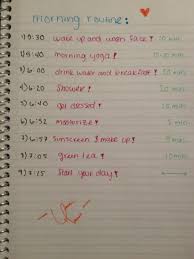 morning routine:
1) 5:30 wake up and wash face! 10 min.
2) 5:40 morning yoga! 20 min.
3) 6:00 drink water and breakfast! 20 min.
4) 6:20 shower! 20 min.
5) 6:40 get dressed! 10 min.
6) 6:52 moisturize! 5 min.
7) 6:57 sunscreen & make up! min.
8) 7:05 green tea! 10 min.
9) 7:15 start your day!